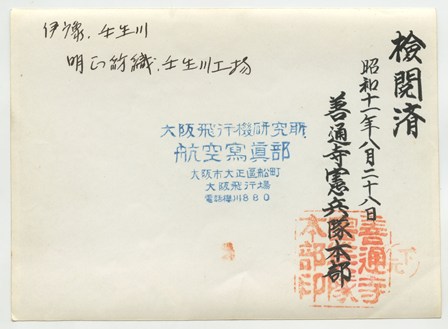 検閲済
昭和十一年八月二十八日
善通寺憲兵隊本部
善通寺
憲兵隊
本部印
伊豫、壬生川
明正紡織、壬生川工場
大阪飛行機研究所
航空寫眞部
大阪市大正區船町
大阪飛行場
電話櫻川860